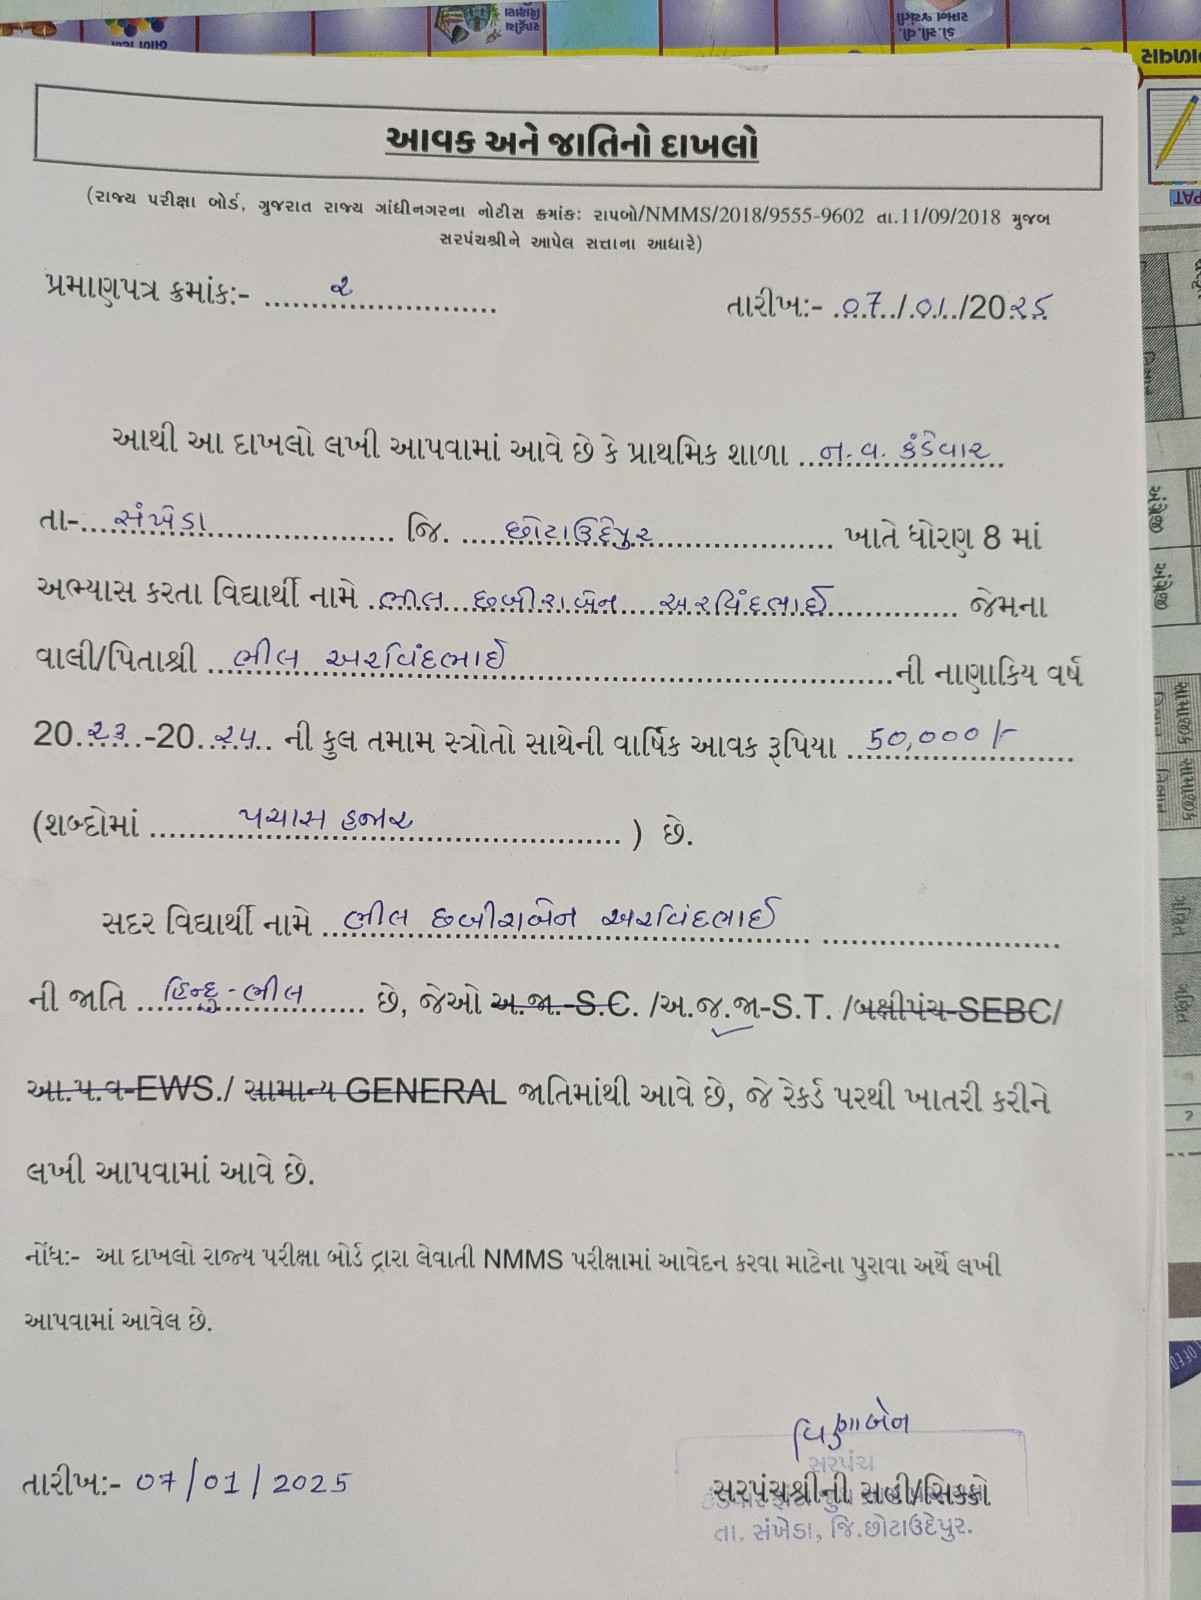 આવક અને જાતિનો દાખલો
(રાજ્ય પરીક્ષા બોર્ડ, ગુજરાત રાજ્ય ગાંધીનગરના નોટીસ ક્રમાંક: રાપબો/NMMS/2018/9555-9602 તા.11/09/2018 મુજબ
સરપંચશ્રીને આપેલ સત્તાના આધારે)
પ્રમાણપત્ર ક્રમાંક:- ૨
તારીખ:- 07/01/20૨૬
આથી આ દાખલો લખી આપવામાં આવે છે કે પ્રાથમિક શાળા ન.વ. કંડેવાર
તા-સંખેડા જિ. છોટાઉદેપુર ખાતે ધોરણ 8 માં
અભ્યાસ કરતા વિદ્યાર્થી નામે ભીલ છબીરાબેન અરવિંદભાઈ જેમના
વાલી/પિતાશ્રી ભીલ અરવિંદભાઈ ની નાણાકિય વર્ષ
20૨૩-20૨૫ ની કુલ તમામ સ્ત્રોતો સાથેની વાર્ષિક આવક રૂપિયા 50,000/-
(શબ્દોમાં પચાસ હજાર) છે.
સદર વિદ્યાર્થી નામે ભીલ છબીરાબેન અરવિંદભાઈ
ની જાતિ હિન્દુ-ભીલ છે, જેઓ અ.જા.-S.C. /અ.જ.જા-S.T. /બક્ષીપંચ-SEBC/
આ.પ.વ-EWS./ સામાન્ય GENERAL જાતિમાંથી આવે છે, જે રેકર્ડ પરથી ખાતરી કરીને
લખી આપવામાં આવે છે.
નોંધ:- આ દાખલો રાજ્ય પરીક્ષા બોર્ડ દ્વારા લેવાતી NMMS પરીક્ષામાં આવેદન કરવા માટેના પુરાવા અર્થે લખી
આપવામાં આવેલ છે.
વિણાબેન
સરપંચ
તારીખ:- 07/01/2025
સરપંચશ્રીની સહી/સિક્કો
તા. સંખેડા, જિ.છોટાઉદેપુર.